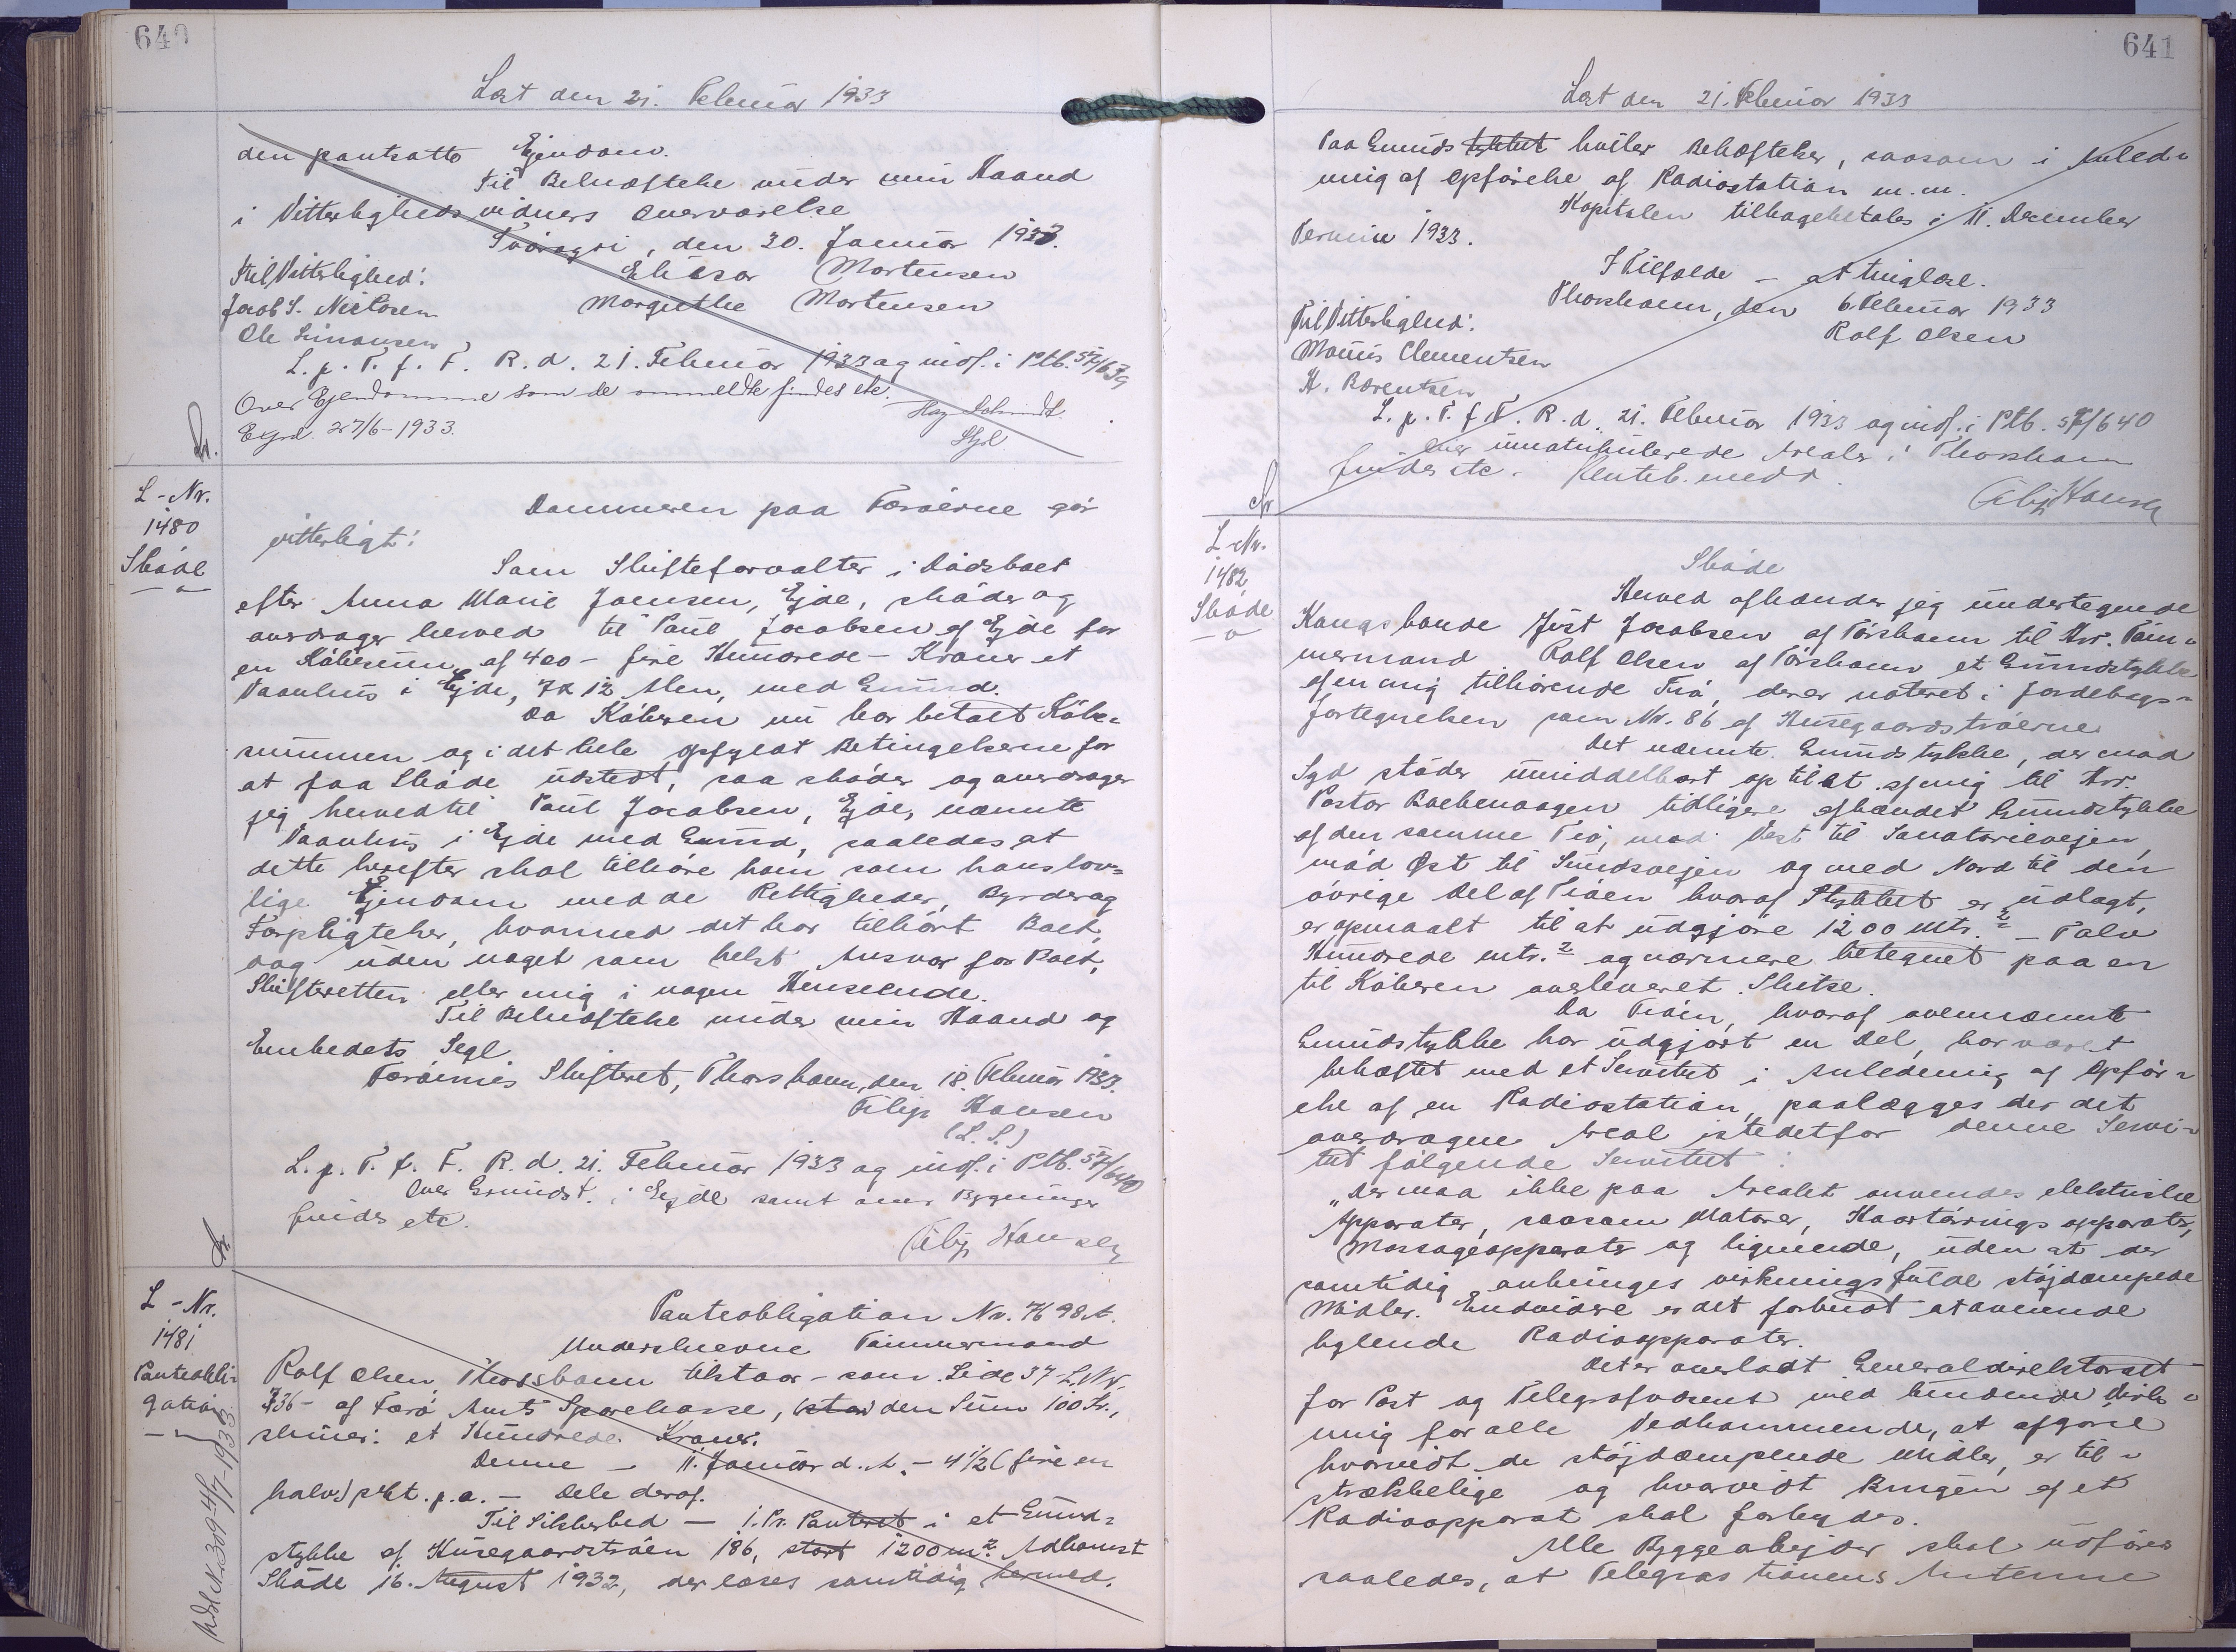 640
Læst den 21. Februar 1933
den pantsatte Ejendom.
Til Bekræftelse under min Haand
i Vitterligheds vidners Overværelse
Tvöroyri, den 30. Januar 1933.
Til Vitterlighed: Eliesar Mortensen
Jacob S. Nielsen Margrethe Mortensen
Ole Simonsen
L. p. T. f. F. R. d. 21. Februar 1933 og indf. i Ptb. 57/639
Over Ejendomme som de anmeldte findes etc.
Egrd. 27/6-1933.
L-Nr.
1480
Sköde
Dommeren paa Færöerne gör
vitterligt:
Som Skifteforvalter i Dödsboet
efter Anna Marie Joensen, Ejde, sköder og
overdrager herved til Poul Jacobsen af Ejde for
en Köbesum af 400 - fire Hundrede - Kroner et
Vaanhus i Ejde, 7 x 12 Alen, med Grund.
Da Köberen nu har betalt Köbe=
summen og i det hele opfyldt Betingelserne for
at faa Sköde udstedt, saa sköder og overdrager
jeg herved til Poul Jacobsen, Ejde, nævnte
Vaanhus i Ejde med Grund, saaledes at
dette herefter skal tilhöre ham som hans lov=
lige Ejendom med de Rettigheder, Byrder og
Forpligtelser, hvormed det har tilhört Boet,
dog uden noget som helst Ansvar for Boet,
Skifteretten eller mig i nogen Henseende.
Til Bekræftelse under min Haand og
Embedets Segl.
Færöernes Skifteret, Thorshavn, den 18. Februar 1933.
Filip Hansen
(L. S.)
L. p. T. f. F. R. d. 21. Februar 1933 og indf. i Ptb. 57/640
Over Grundst. i Ejde samt over Bygninger
findes etc.
Filip Hansen
L-Nr.
1481
Panteobli=
gation
Panteobligation Nr. 7698 A.
Underskrevne Tömmermand
Rolf Olsen, Thorshavn tilstaar - som Side 37 L.Nr.
736 - af Færö Amts Sparekasse, den Sum 100 Kr.,
skriver: et Hundrede Kroner.
Denne - 11. Januar d. A. - 4 1/2 (fire en
halv) pCt. p.a. - Dele deraf.
Til Sikkerhed - 1. Pr. Panteret i et Grund=
stykke af Húsegaardströen 186, stort 1200 m². Adkomst
Sköde 16. August 1932, der læses samtidig hermed.
641
Læst den 21. Februar 1933
Paa Grundstykket hviler Behæftelser, saasom i Anled=
ning af Opförelse af Radiostation m.m.
Kapitalen tilbagebetales i 11. December
Termin 1933.
I Tilfælde - at tinglæse.
Thorshavn, den 6. Februar 1933
Til Vitterlighed: Rolf Olsen
Mouris Clementsen
H. Bærentsen
L. p. T. f. F. R. d. 21. Februar 1933 og indf. i Ptb. 57/640
Over umatrikulerede Arealer i Thorshavn
findes etc.
Filip Hansen
L-Nr.
1482
Sköde
Sköde
Herved afhænder jeg undertegnede
Kongsbonde Jóst Jacobsen af Tórshavn til Hr. Töm=
mermand Rolf Olsen af Tórshavn et Grundstykke
af en mig tilhörende Trö, der er noteret i Jordebogs=
fortegnelsen som Nr. 86 af Húsegaardströerne.
Det nævnte Grundstykke, der mod
Syd stöder umiddelbart op til et af mig til Hr.
Pastor Backevaagen tidligere afhændet Grundstykke
af den samme Trö, mod Vest til Sanatorievejen,
mod Øst til Sundsvejen og mod Nord til den
övrige Del af Tröen hvoraf Stykket er udlagt,
er opmaalt til at udgjöre 1200 mtr.² - Tolv
Hundrede mtr.² og nærmere betegnet paa en
til Köberen overleveret Skitse.
Da Tröen, hvoraf ovennævnte
Grundstykke har udgjort en Del, har været
behæftet med et Servitut i Anledning af Opför=
else af en Radiostation, paalægges der det
overdragne Areal istedetfor denne Servi=
tut fölgende Servitut:
"Der maa ikke paa Arealet anvendes elektriske
Apparater, saasom Motorer, Haartörrings apparater,
Massageapparater og lignende, uden at der
samtidig anbringes virkningsfulde stöjdæmpede
Midler. Endvidere er det forbudt at anvende
hylende Radioapparater.
Det er overladt Generaldirektoratet
for Post og Telegrafvæsenet med bindende Virk=
ning for alle Vedkommende, at afgöre
hvorvidt de stöjdæmpende Midler er til=
strækkelige og hvorvidt Brugen af et
Radioapparat skal forbydes.
Alle Byggearbejder skal udföres
saaledes, at Telegrafstationens Antenne